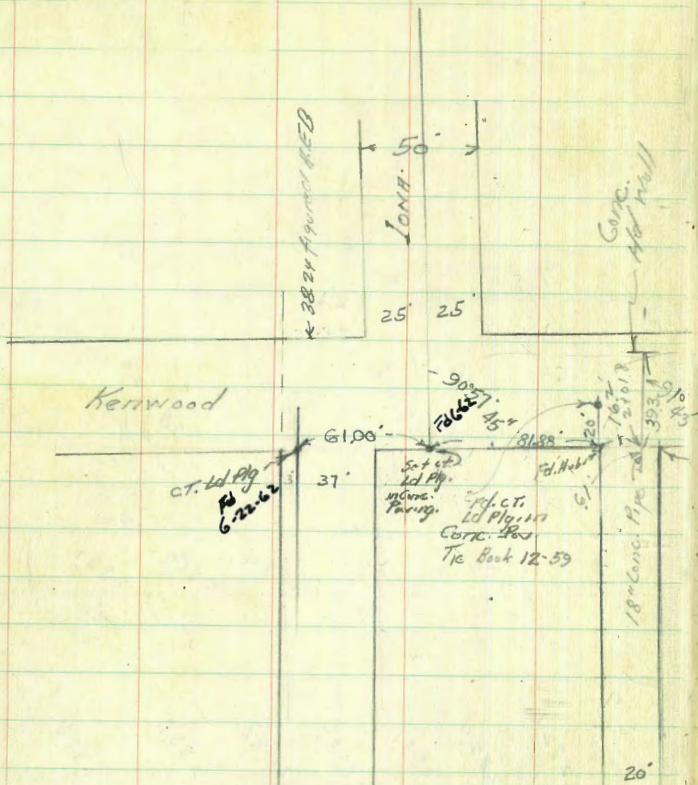 50'
IONA.
38.24 figured K.E.B
Conc.
Hd Wall
25' 25'
Kenwood
90°57'
45"
Fd 6-62
16.2'
20'
61.00'
81.88
Fd. Hub
C.T. Ld Plg
Fd
6-22-62
3' 37'
Set ct.
Ld Plg.
in Conc.
Paving.
Fd. C.T.
Ld Plg. in
Conc. Pav.
Tie Book 12-59
18" Conc. Pipe
20'